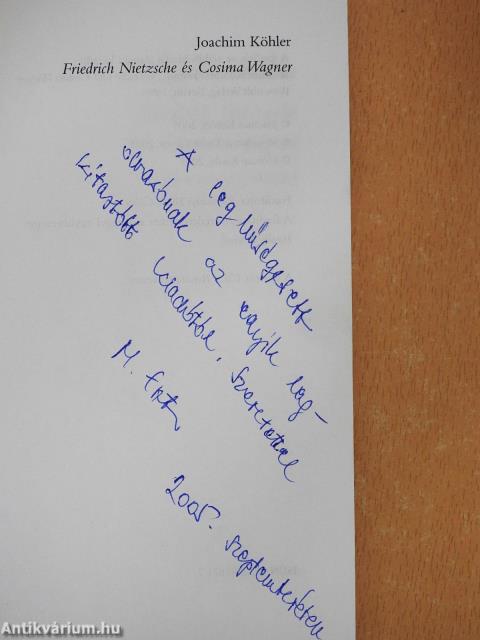 Joachim Köhler
Friedrich Nietzsche és Cosima Wagner
A leg hűségesebb
olvasónak az egyik leg-
kitartóbb kiadótól, szeretettel
M.
2005. szeptemberében
Antikvárium.hu